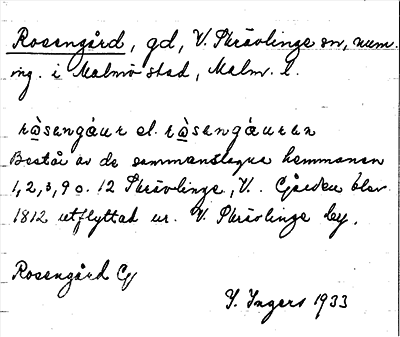 Rosengård, gd, V. Skrävlinge sn, num.
ing. i Malmö stad, Malm. l.
ròsengáur el. ròsengáuren
Består av de sammanslagna hemmanen
1, 2, 3, 9 o. 12 Skrävlinge, V. Gården blev
1812 utflyttad ur V. Skrävlinge by.
Rosengård Gg
I. Ingers 1933